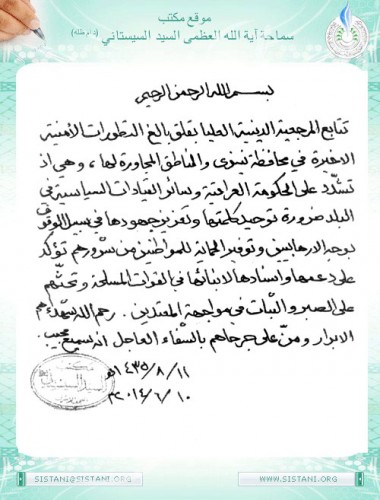 موقع مكتب
سماحة آية الله العظمى السيد السيستاني (دام ظله)
بسم الله الرحمن الرحيم
تتابع المرجعية الدينية العليا بقلق بالغ التطورات الأمنية
الاخيرة في محافظة نينوى والمناطق المجاورة لها، وهي اذ
تشدد على الحكومة العراقية وسائر القيادات السياسية في
البلد ضرورة توحيد كلمتها وتعزيز جهودها في سبيل الوقوف
بوجه الارهابيين وتوفير الحماية للمواطنين من شرورهم تؤكد
على دعمها واسنادها لابنائها في القوات المسلحة وتحثهم
على الصبر والثبات في مواجهة المعتدين. رحم الله شهداءهم
الابرار ومنّ على جرحاهم بالشفاء العاجل انه سميع مجيب.
١١/٨/١٤٣٥هـ
١٠/٦/٢٠١٤م
SISTANI@SISTANI.ORG
WWW.SISTANI.ORG